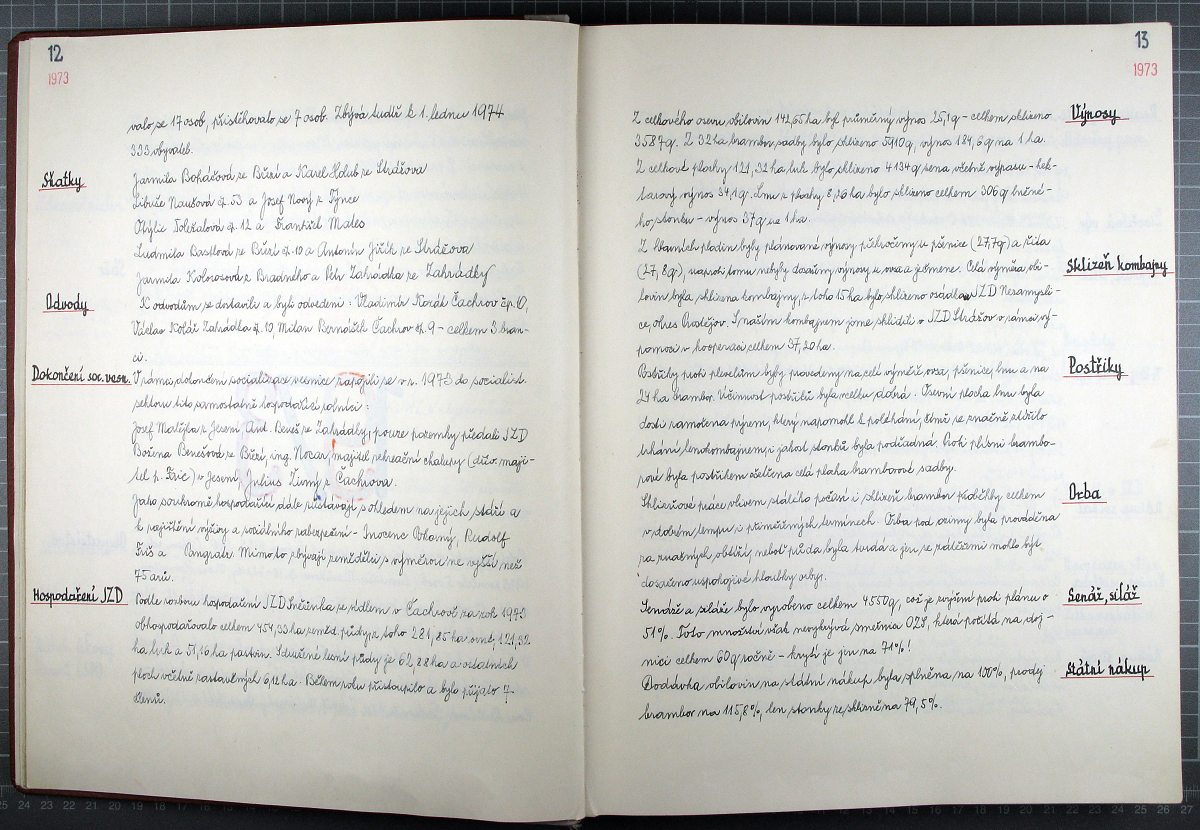 12
1973
valo se 17 osob, přistěhovalo se 7 osob. Zbývá tudíž k 1. lednu 1974
333 obyvatel.
Sňatky
Jarmila Boháčová ze Bůzí a Karel Holub ze Strážova
Libuše Naušová čp. 53 a Josef Nový z Týnce
Otýlie čp. 12 a František Mateo
Ludmila Bastlová ze Bůzí čp. 10 a Antonín Jiřík ze Strážova
Jarmila z Bradného a Petr Zahrádka ze Zahrádky
Odvody
K odvodům se dostavili a byli odvedeni: Vladimír Čachrov čp. 10,
Václav Kolář Zahrádka čp. 10, Milan Bernášek Čachrov čp. 9 – celkem 3 bran-
ci.
Dokončení soc. vesn.
V rámci dokončení socializace vesnice zapojili se v r. 1973 do socialist.
sektoru tito samostatně hospodařící rolníci:
Josef Matějka z Jesení, Ant. Beneš ze Zahrádky, pouze pozemky předali JZD
Božena Benešová ze Bůzí, ing. majitel rekreační chalupy (dův. maji-
tel p. Fric) v Jesení, Julius Živný z Čachrova.
Jako soukromě hospodařící dále zůstávají s ohledem na jejich stáří a
k zajištění výživy a sociálního zabezpečení – Inocenc Rudolf
Friš a Pangratz. Mimo to zbývají zemědělci s výměrou ne vyšší než
75 arů.
Hospodaření JZD
Podle rozboru hospodaření JZD Sněženka se sídlem v Čachrově za rok 1973
obhospodařovalo celkem 454,33 ha zeměd. půdy, z toho 281,85 ha orné, 121,32
ha luk a 51,16 ha pastvin. Sdružené lesní půdy je 62,88 ha a ostatních
ploch včetně zastavěných 6,12 ha. Během roku přistoupilo a bylo přijato 7
členů.
13
1973
Výnosy
Z celkového osevu obilovin 142,65 ha byl průměrný výnos 25,1 q – celkem sklizeno
3587 q. Z 32 ha brambor. sadby bylo sklizeno 5910 q, výnos 184,6 q na 1 ha.
Z celkové plochy 121,32 ha luk bylo sklizeno 4134 q sena včetně výpasu – hek-
tarový výnos 34,1 q. Lnu z plochy 8,26 ha bylo sklizeno celkem 306 q lněné-
ho stonku – výnos 37 q na 1 ha.
Sklizeň kombajny
Z hlavních plodin byly plánované výnosy překročeny u pšenice (27,7 q) a žita
(27,8 q), naproti tomu nebyly dosaženy výnosy u ovsa a ječmene. Celá výměra obi-
lovin byla sklizena kombajny, z toho 15 ha bylo sklizeno osádkou JZD Nezamysli-
ce, okres Prostějov. S naším kombajnem jsme sklidili v JZD Strážov v rámci vý-
pomoci v kooperaci celkem 37,20 ha.
Postřiky
Postřiky proti plevelům byly provedeny na celé výměře ovsa, pšenice, lnu a na
24 ha brambor. Účinnost postřiků byla velmi dobrá. Osevní plocha lnu byla
dosti zamořena pýrem, který napomohl k poléhání, čímž se značně ztížilo
trhání lnokombajnem, i jakost stonků byla podřadná. Proti plísni brambo-
rové byla postřikem ošetřena celá plocha bramborové sadby.
Orba
Sklizňové práce vlivem stálého počasí i sklizeň brambor proběhly celkem
v dobrém tempu i přiměřených termínech. Orba pod ozimy byla prováděna
za značných obtíží, neboť půda byla tvrdá a jen se zátěžemi mohlo být
dosaženo uspokojivé hloubky orby.
Senáž, siláž
Senáže a siláže bylo vyrobeno celkem 4550 q, což je zvýšení proti plánu o
51%. Toto množství však nevykrývá směrnia OZS, která počítá na doj-
nici celkem 60 q ročně – krytí je jen na 71%!
Státní nákup
Dodávka obilovin na státní nákup byla splněna na 100%, prodej
brambor na 115,8%, len stonky ze sklizně na 79,5%.